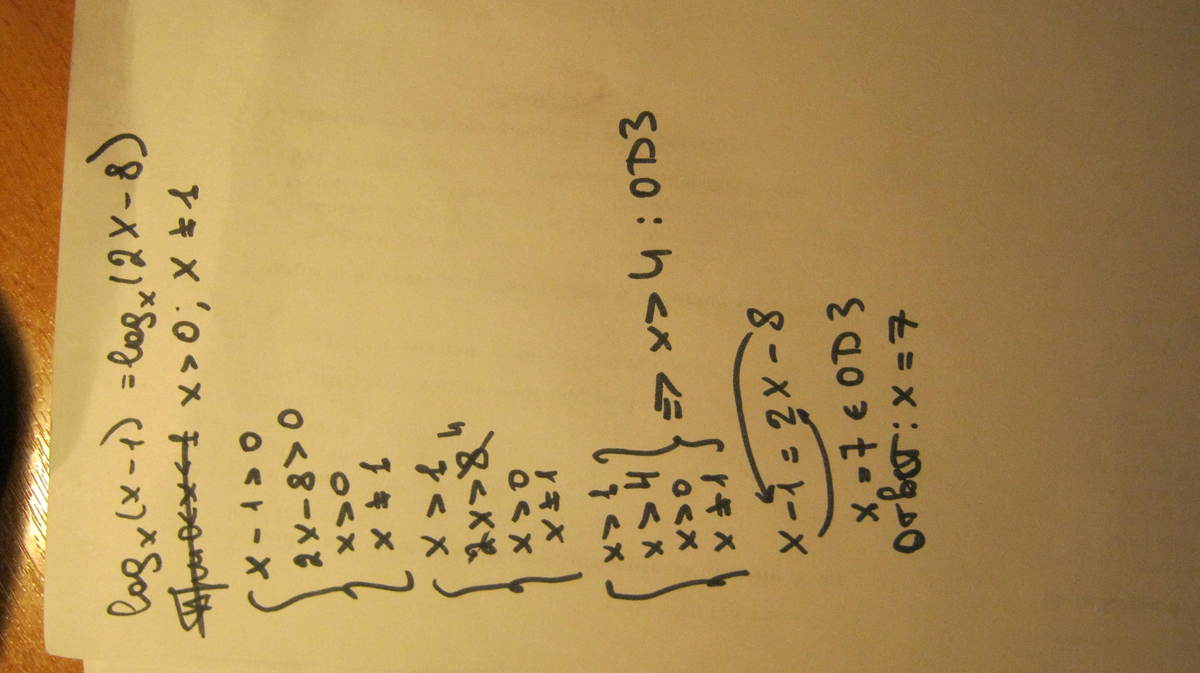 logₓ(x-1) = logₓ(2x-8)
x>0; x≠1
{ x-1>0
2x-8>0
x>0
x≠1
{ x>1
2x>8 4
x>0
x≠1
{ x>1
x>4
x>0
x≠1 } => x>4 : ОДЗ
x-1=2x-8
x=7 ∈ ОДЗ
Ответ: x=7